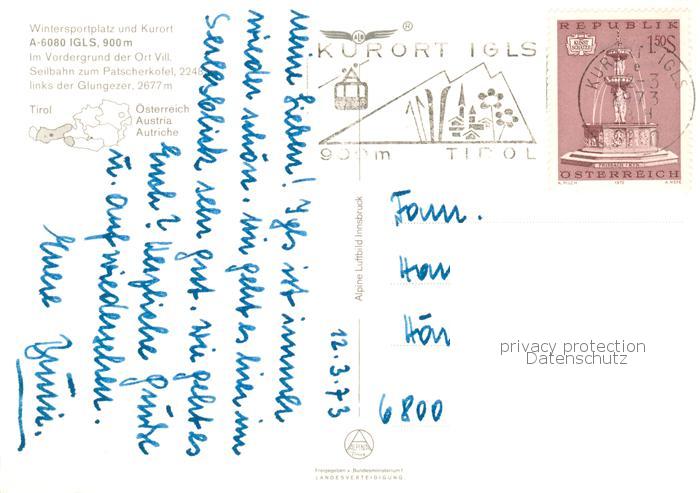 Wintersportplatz und Kurort
A-6080 IGLS, 900 m
Im Vordergrund der Ort Vill.
Seilbahn zum Patscherkofel, 2248
links der Glungezer, 2677 m
Tirol
Österreich
Austria
Autriche
meine Lieben! Igls ist immer
wieder schön. Mir geht es hier im
sehr gut. Wie geht es
Euch? Herzliche Grüße
u. auf wiedersehen.
Euere
12.3.73
KURORT IGLS
900 m TIROL
REPUBLIK
1.50 S
KURORT IGLS
FRIESACH / KTN.
ÖSTERREICH
1972
Alpine Luftbild Innsbruck
Fam.
6800
privacy protection
Datenschutz
ALPINE
Freigegeben v. Bundesministerium f.
LANDESVERTEIDIGUNG.